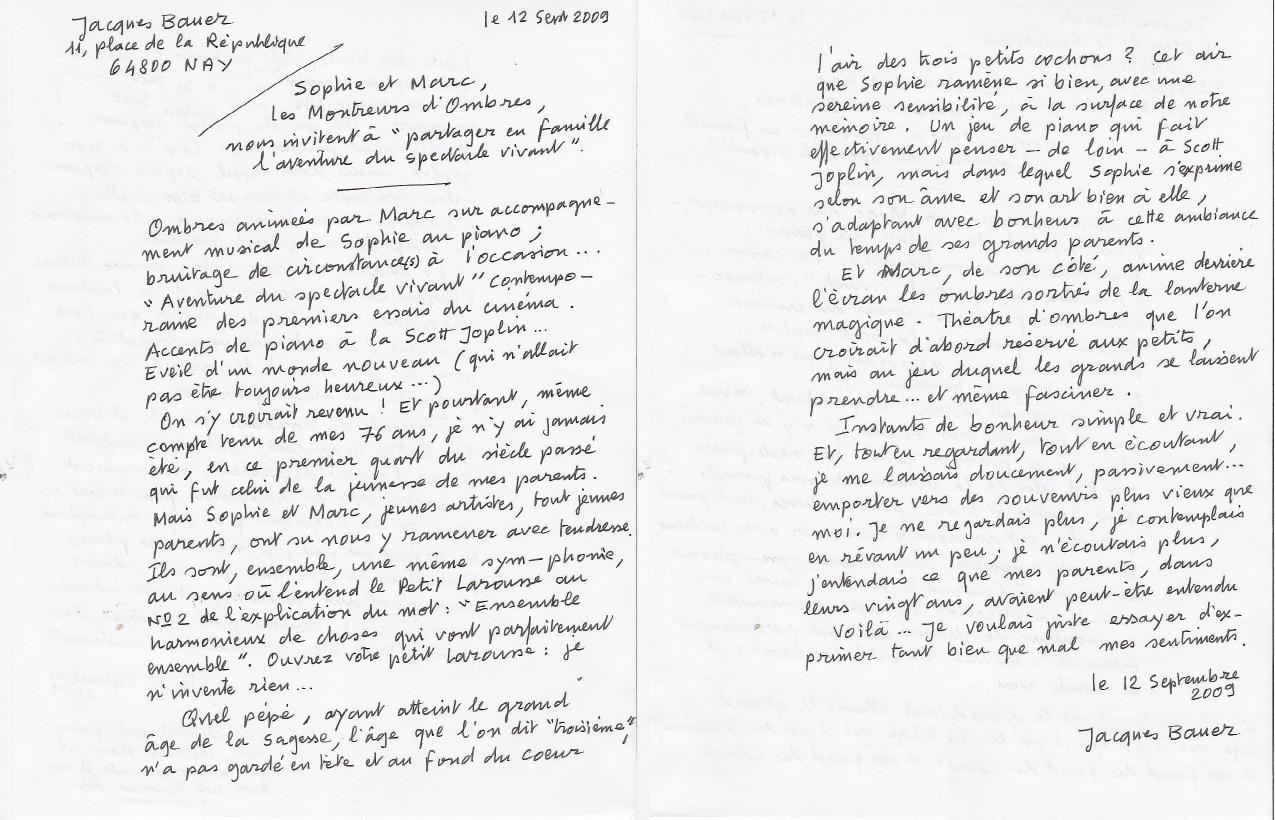 Jacques Bauer
11, place de la République
64800 NAY
le 12 Sept 2009
Sophie et Marc,
les Montreurs d'Ombres,
nous invitent à "partager en famille
l'aventure du spectacle vivant".
Ombres animées par Marc sur accompagne-
ment musical de Sophie au piano ;
bruitage de circonstance(s) à l'occasion...
"Aventure du spectacle vivant" contempo-
raine des premiers essais du cinéma.
Accents de piano à la Scott Joplin...
Eveil d'un monde nouveau (qui n'allait
pas être toujours heureux...)
On s'y croirait revenu ! Et pourtant, même
compte tenu de mes 76 ans, je n'y ai jamais
été, en ce premier quart du siècle passé
qui fut celui de la jeunesse de mes parents.
Mais Sophie et Marc, jeunes artistes, tout jeunes
parents, ont su nous y ramener avec tendresse.
Ils sont, ensemble, une même sym-phonie,
au sens où l'entend le Petit Larousse au
No 2 de l'explication du mot : "Ensemble
harmonieux de choses qui vont parfaitement
ensemble". Ouvrez votre petit Larousse : je
n'invente rien...
Quel pépé, ayant atteint le grand
âge de la sagesse, l'âge que l'on dit "troisième",
n'a pas gardé en tête et au fond du coeur
l'air des trois petits cochons ? Cet air
que Sophie ramène si bien, avec une
sereine sensibilité, à la surface de notre
mémoire. Un jeu de piano qui fait
effectivement penser - de loin - à Scott
Joplin, mais dans lequel Sophie s'exprime
selon son âme et son art bien à elle,
s'adaptant avec bonheur à cette ambiance
du temps de ses grands parents.
Et Marc, de son côté, anime derrière
l'écran les ombres sorties de la lanterne
magique. Théatre d'ombres que l'on
croirait d'abord réservé aux petits,
mais au jeu duquel les grands se laissent
prendre... et même fasciner.
Instants de bonheur simple et vrai.
Et, tout en regardant, tout en écoutant,
je me laissais doucement, passivement...
emporter vers des souvenirs plus vieux que
moi. Je ne regardais plus, je contemplais
en rêvant un peu ; je n'écoutais plus,
j'entendais ce que mes parents, dans
leurs vingt ans, avaient peut-être entendu
Voilà... Je voulais juste essayer d'ex-
primer tant bien que mal mes sentiments.
le 12 Septembre
2009
Jacques Bauer